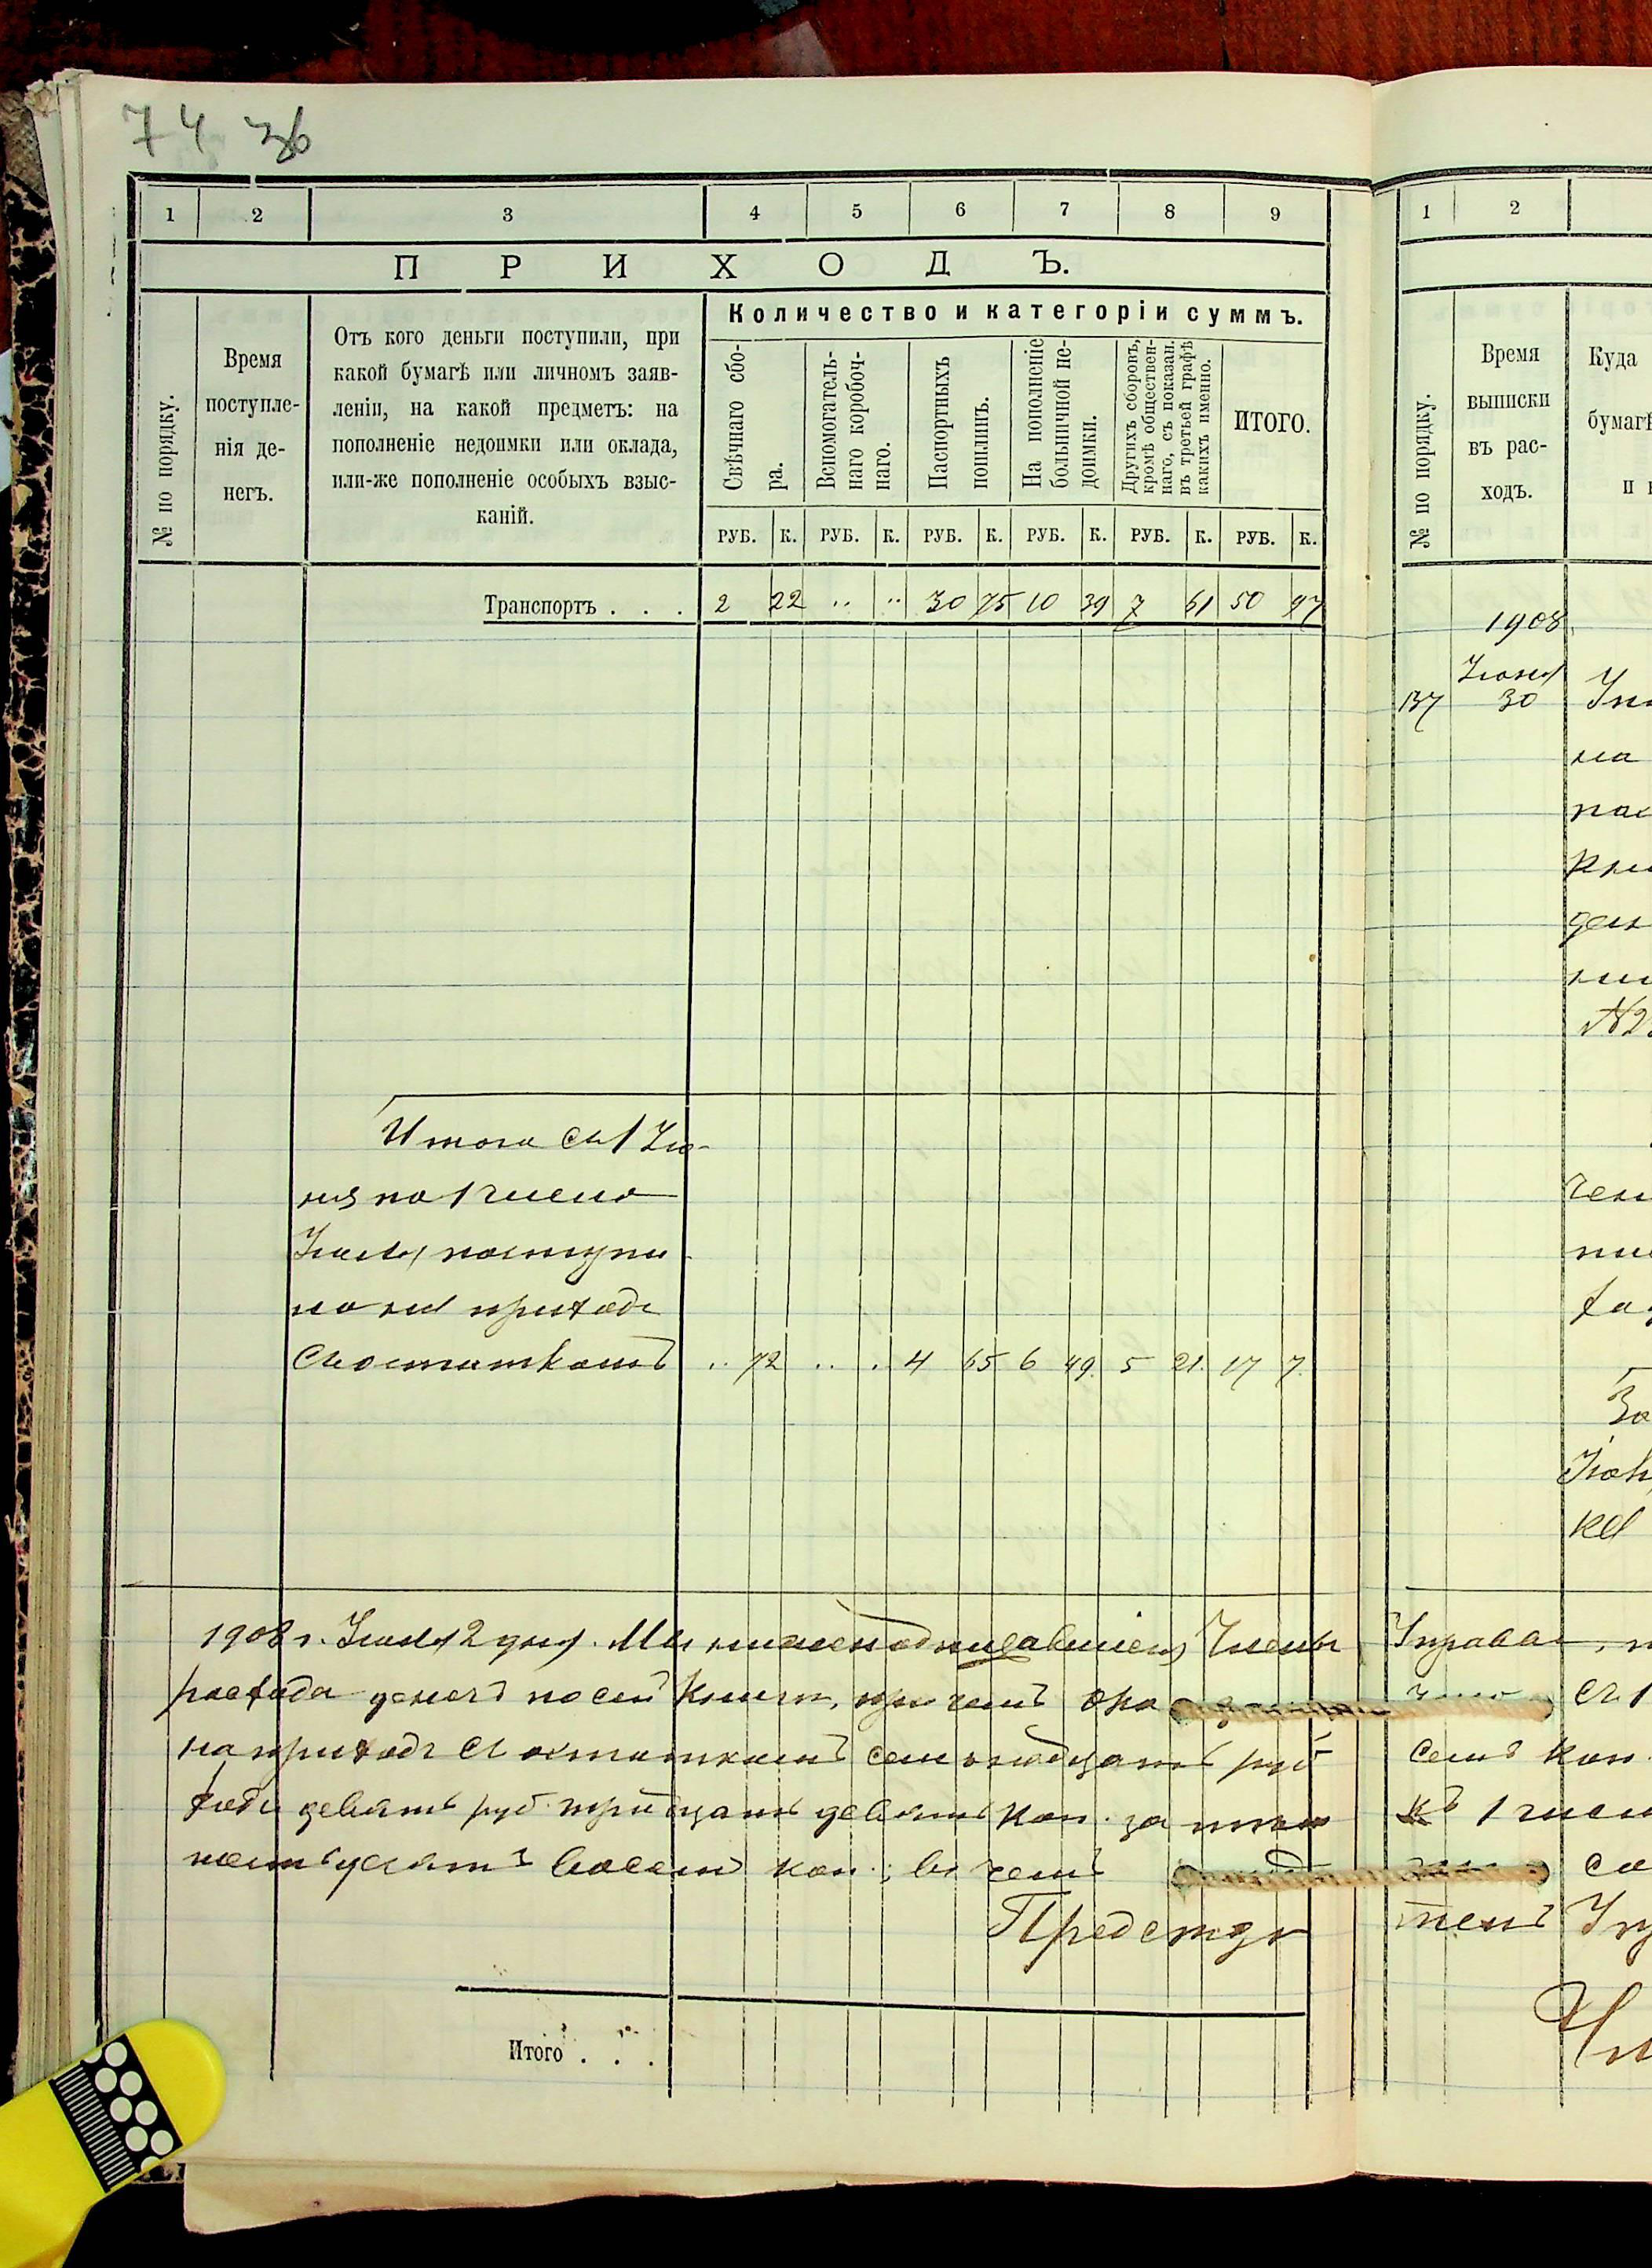 74 36
1 2 3 4 5 6 7 8 9
ПРИХОДЪ.
№ по порядку.
Время поступле-
нія де-
негъ.
Отъ кого деньги поступили, при
какой бумагѣ или личномъ заяв-
леніи, на какой предметъ: на
пополненіе недоимки или оклада,
или-же пополненіе особыхъ взыс-
каній.
Количество и категоріи суммъ.
Свѣчнаго сбо-
ра.
Вспомогатель-
наго коробоч-
наго.
Паспортныхъ
пошлинъ.
На пополненіе
больничной не-
доимки.
Другихъ сборовъ,
кромѣ обществен-
наго, съ показан.
въ третьей графѣ
какихъ именно.
ИТОГО.
РУБ. К. РУБ. К. РУБ. К. РУБ. К. РУБ. К. РУБ. К.
Транспортъ . . . 2 22 .. .. 30 75 10 39 7 61 50 97
Итого съ 1 Ію-
ня по 1 число
Іюля поступи
ло на приходъ
съ остаткомъ .. 72 .. . 4 65 6 49. 5 21. 17 7.
1908 г. Іюля 2 дня. Мы нижеподписавшіеся Члены
расхода денегъ по сей книги, при чемъ ока
на приходъ съ остаткомъ семьнадцать руб
ходъ девять руб. тридцать девять коп. за
шестьдесятъ восемь коп.; въ чемъ
Председа
Итого . . .
1 2
№ по порядку.
Время
выписки
въ рас-
ходъ.
Куда
бумагѣ
и
1908
Іюня
137 30
на
№2
Управы,
съ 1
семь коп.
къ 1 числ
тель